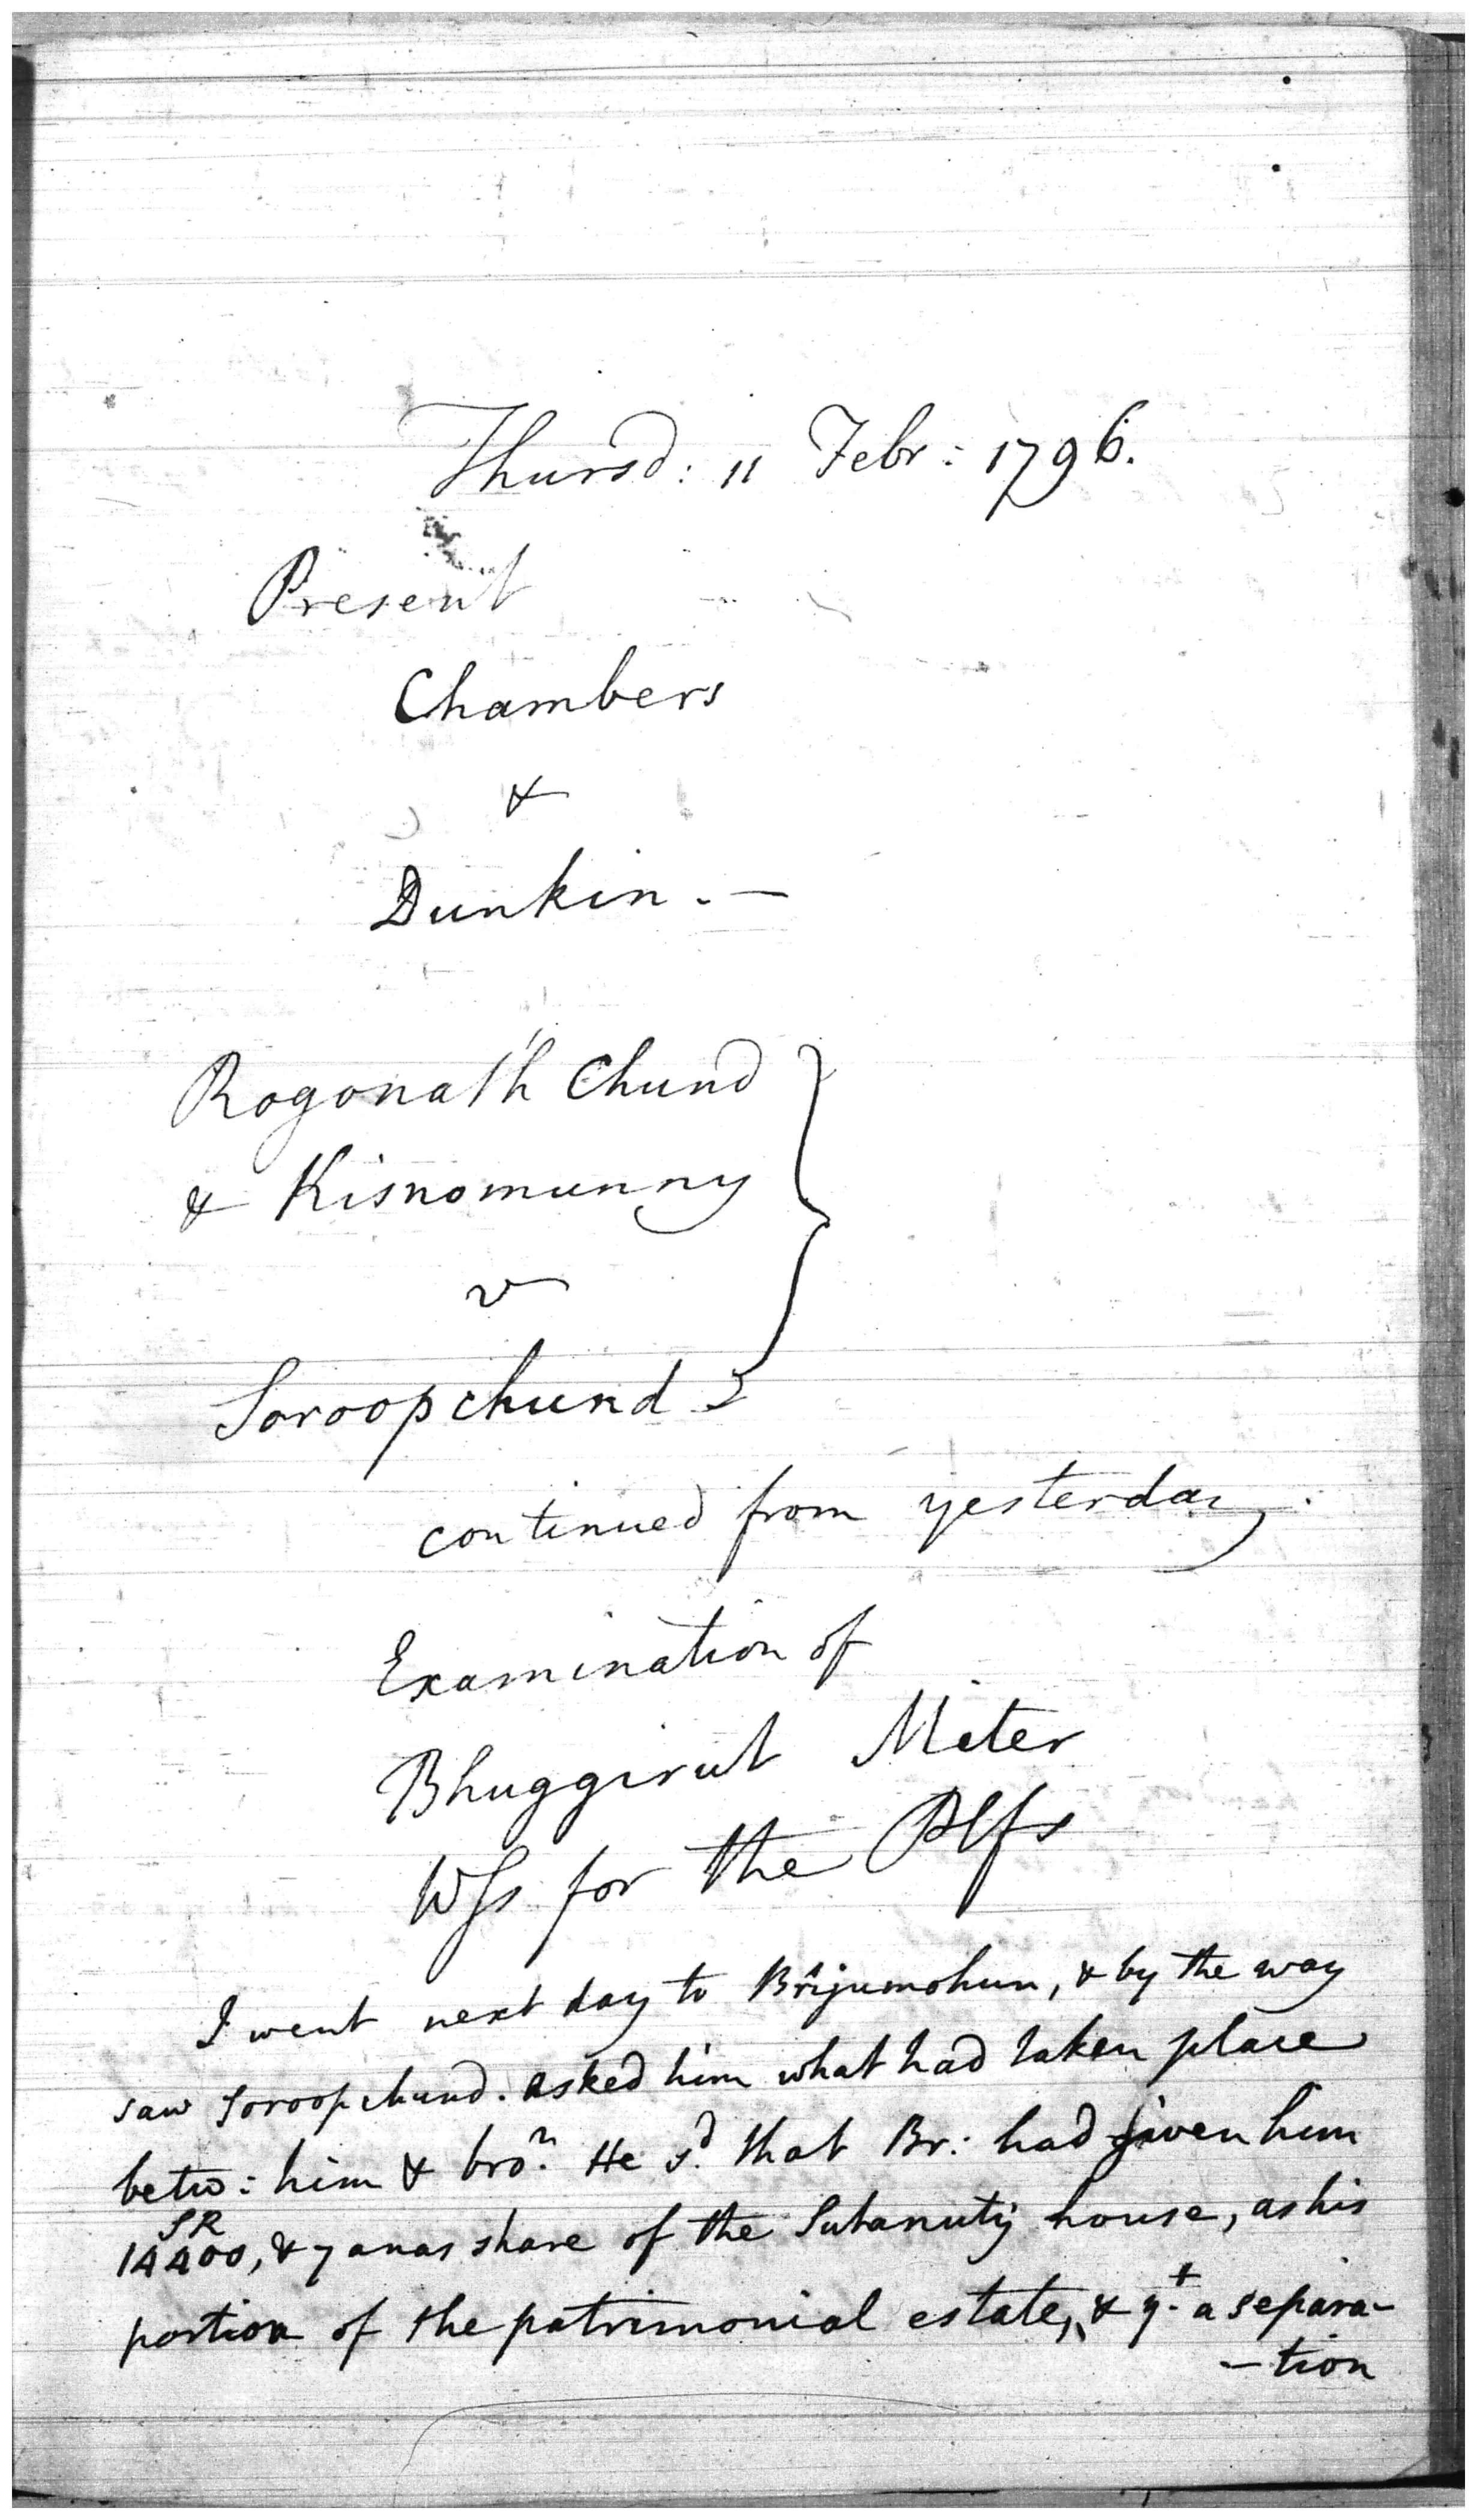 Thursd: 11 Febr: 1796.
Present
Chambers
&
Dunkin. —
Rogonath Chund
& Kisnomunny
v
Soroopchund
continued from yesterday.
Examination of
Bhuggirut Miter
Wss for the Plfs
I went next day to Brijumohun, & by the way
saw Soroopchund. asked him what had taken place
betw: him & bror. He sd. that Br: had given him
SR
14400, & 7 anas share of the Sutanuty house, as his
portion of the patrimonial estate, & yt. a separa-
-tion